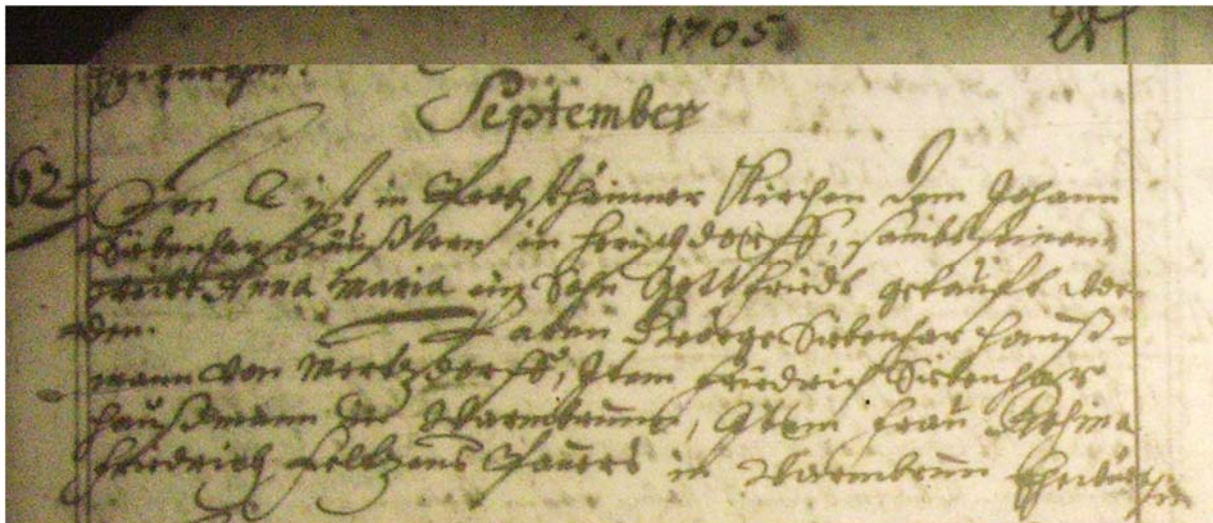 1705
September
62
Den 2 ist in Kirchen dem Johann
Siebenhar Häußlern in Herischdorff, sambt seinem
Weibe Anna Maria ein Sohn Gottfriedt getaufft wor
den. Paten George Siebenhar Hauß-
mann von Mertzdorff, Item Friedrich Siebenhar
Haußmann zu Warmbrunn, Item Frau
Friedrich Pauers in Warmbrunn Eheweib